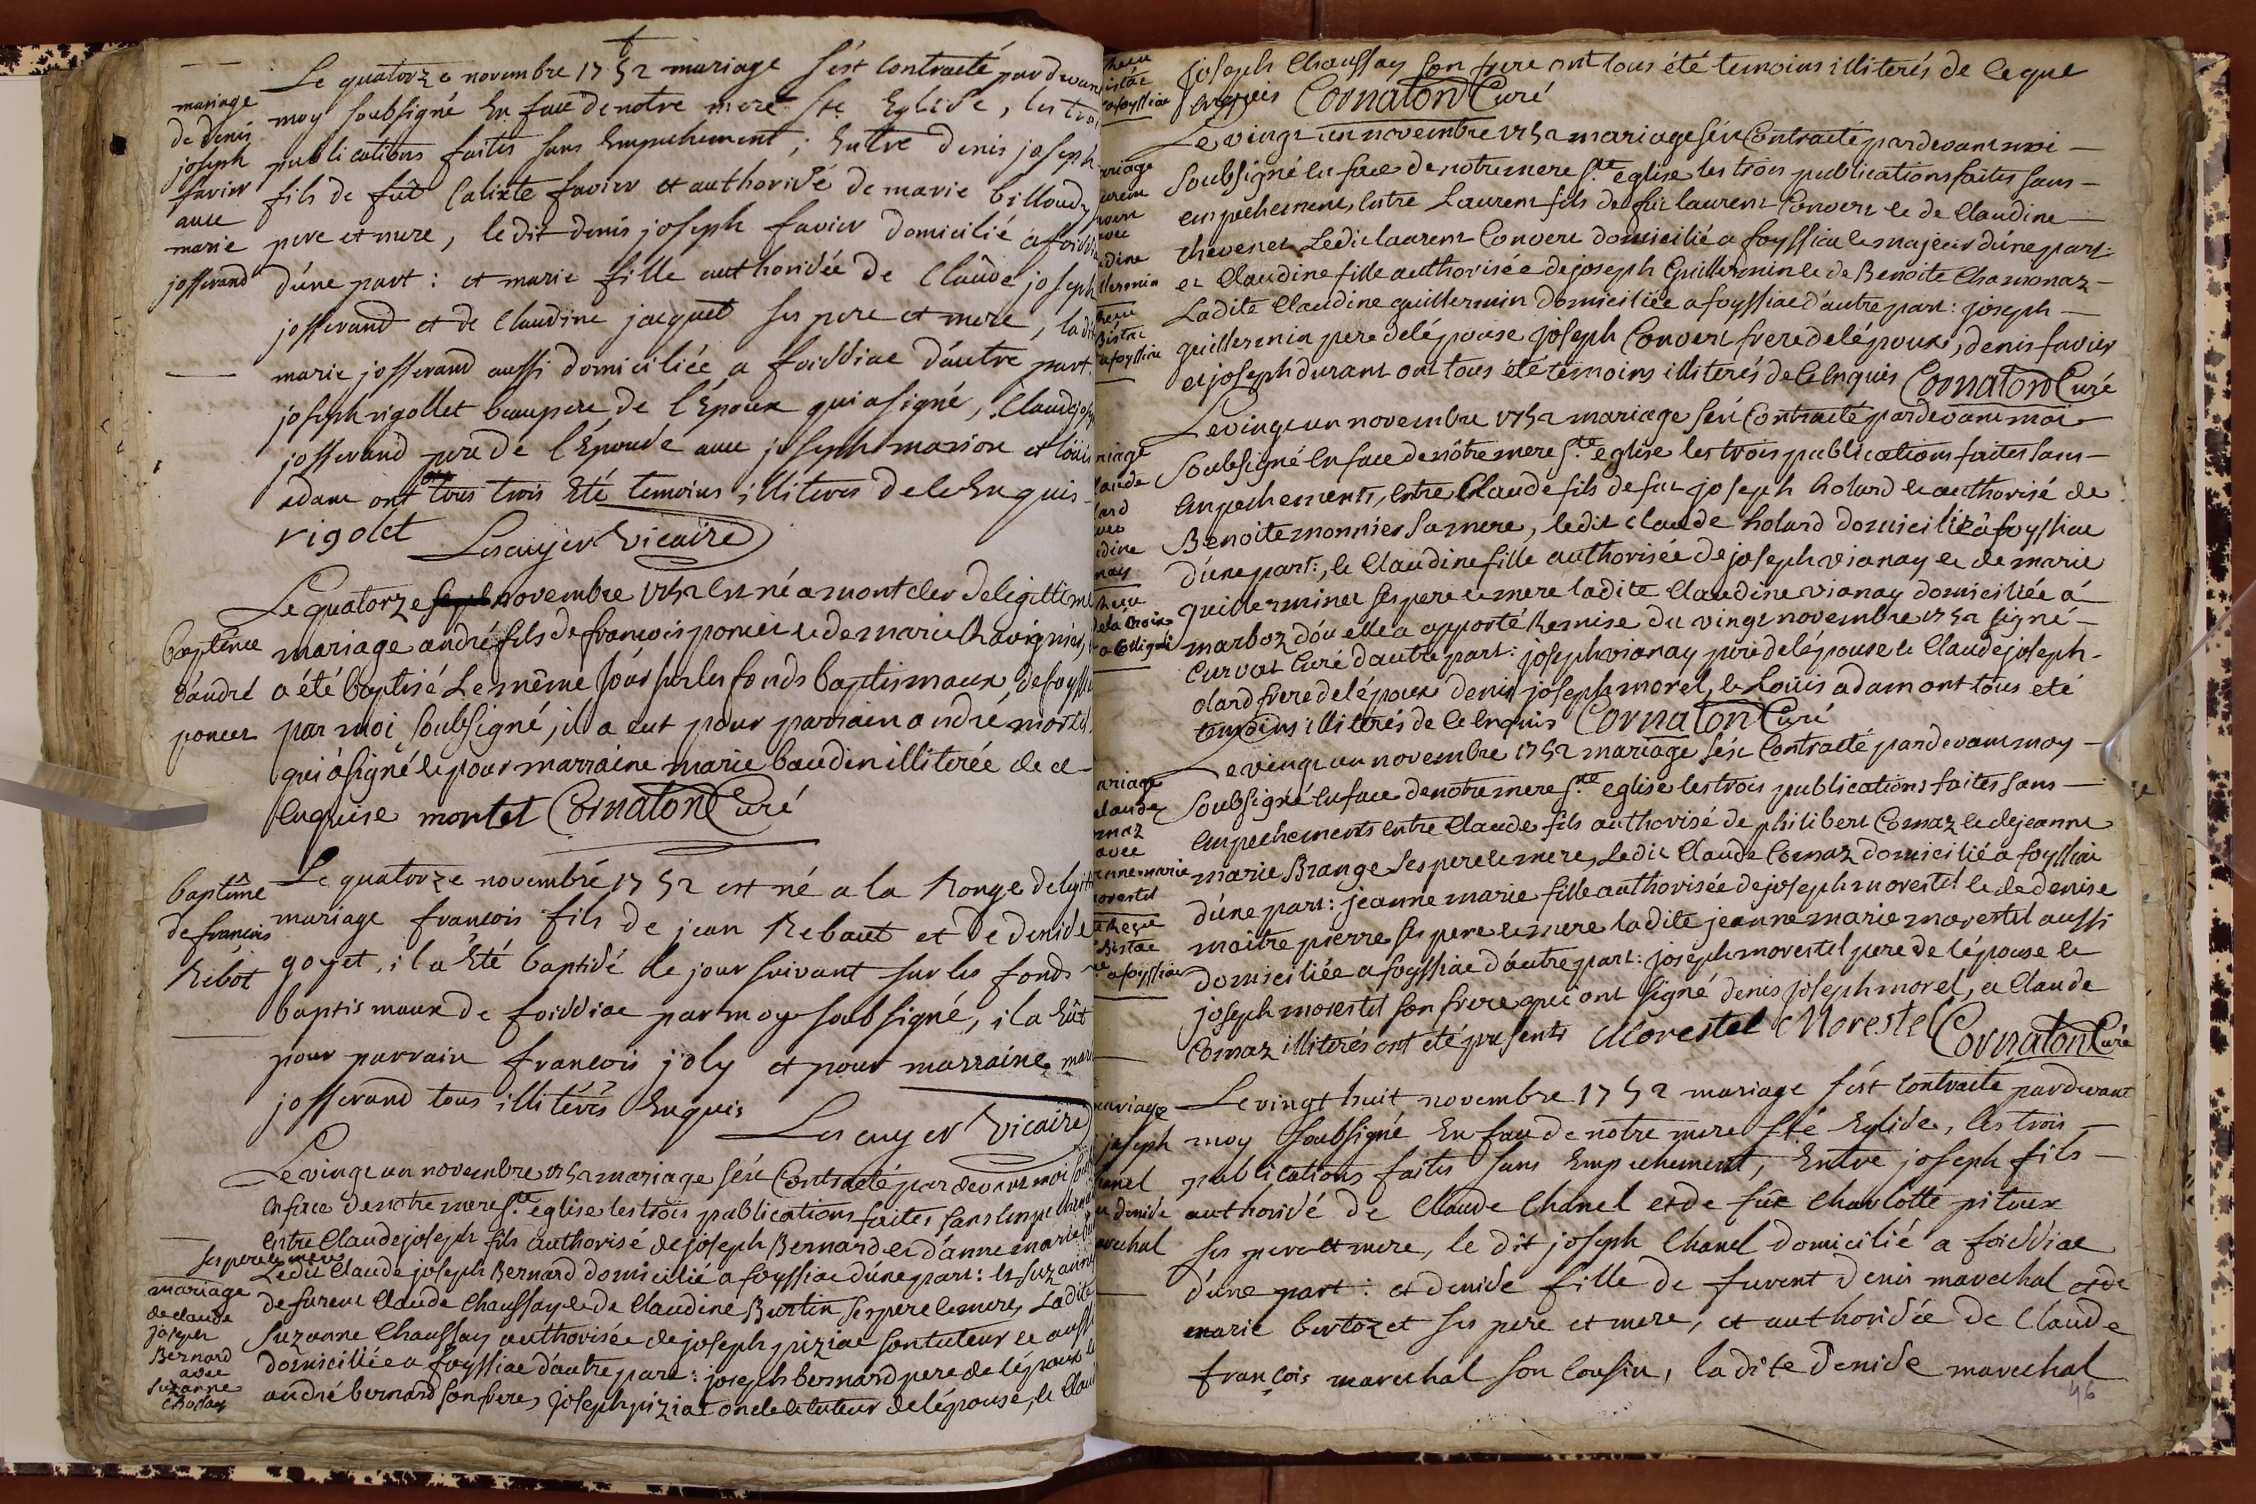 Le quatorze novembre 1752 mariage s'ést contracté pardevant
mariage
de denis
joseph
favier
avec
marie
josserand
moy soubsigné En face de notre mere Ste Eglise, les trois
publications faites sans Empechement ; Entre denis joseph
fils de fût Calixte favier et authorisé de marie billoudz
pere et mere, ledit denis joseph favier domicilié a foissia
d'úne part : et marie fille authorisée de Claude joseph
josserand et de Claudine jacquet ses pere et mere, ladite
marie josserand aussi domiciliée a foissiac d'áutre part.
joseph rigollet beaupere de l'Epoux qui a signé, Claude joseph
josserand pere de l'Epouse avec joseph marion et loüis
adam ont tous trois Eté temoins illiteres de ce Enquis
rigolet Lescuyer Vicaire
Le quatorze novembre 1752 Est né a montcler de legittime
baptême
d'andré
poncet
mariage andré fils de francois poncet et de marie Chavignier,
a été baptisé Le même joúr sur les fonds baptismaux de foyssia
par moi soubsigné, il a eut pour parrain andré mortel
qui a signé et pour marraine marie baudin illiterée de ce
Enquise mortel Cornaton Curé
Le quatorze novembre 1752 est né a la Ronge de legitime
baptême
de francois
Rebot
mariage francois fils de jean Rebaut et de denise
goyet, il a Eté baptisé le jour suivant sur les fonds
baptismaux de foissiac par moy soubsigné, il a Eût
pour parrain francois joly et pour marraine marie
josserand tous illitérés Enquis
Lescuyer Vicaire
Le vingt un novembre 1752 mariage s'ést Contracté par devant moi soubsigné
En face de nôtre mere Ste église les trois publications faites sans Empechement
Entre Claude joseph fils authorisé de joseph Bernard et d'anne marie
ses pere et mere
Ledit Claude joseph Bernard domicilié a foyssiac d'úne part : et suzanne
mariage
de claude
joseph
Bernard
avec
suzanne
Chossay
de furent Claude Chaussay et de Claudine Burtin ses pere et mere, Ladite
suzanne Chaussay authorisée de joseph piziat son tuteur et aussi
domiciliée a foyssiac d'autre part : joseph bernard pere de l'époux et
andré bernard son frere, joseph piziat oncle et tuteur de l'épouse, et Claude
joseph Chaussay son frere ont tous été temoins illiterés de ce que
Enquis Cornaton Curé
Le vingt un novembre 1752 mariage s'ést Contracté pardevant moi
soubsigné En face de notre mere Ste église les trois publications faites sans
empechement, Entre Laurent fils de fût laurent Convert et de Claudine
thevenet Ledit laurent Convert domicilié a foyssiac et majeur d'úne part
et Claudine fille authorisée de joseph Guillermin et de Benoite Chamonaz
Ladite Claudine guillermin domiciliée a foyssiac d'autre part : joseph
guillermin pere de l'épouse joseph Convert frere de l'époux, denis favier
et joseph durant ont tous été témoins illiterés de ce Enquis Cornaton Curé
Le vingt un novembre 1752 mariage s'ést Contracté pardevant moi
soubsigné En face de nôtre mere Ste église les trois publications faites sans
Empechements, Entre Claude fils de fut joseph holard et authorisé de
Benoite monnier sa mere, ledit claude holard domicilié a foyssiac
d'úne part :, et Claudine fille authorisée de joseph vianay et de marie
guillerminet ses pere et mere ladite Claudine vianay domiciliée á
marboz d'óu elle a apporté Remise du vingt novembre 1752 signé
Curvat Curé d'autre part : joseph vianay pere de l'épouse et Claude joseph
olard frere de l'époux denis joseph morel, et Loüis adam ont tous eté
temoins illiterés de ce Enquis Cornaton Curé
Le vingt un novembre 1752 mariage s'ést Contracté pardevant moy
soubsigné En face de notre mere Ste église les trois publications faites sans
Empechements entre Claude fils authorisé de philibert Comaz et de jeanne
marie Brange ses pere et mere, Ledit Claude Comaz domicilié a foyssiac
d'úne part : jeanne marie fille authorisée de joseph morestel et de denise
maitre pierre ses pere et mere ladite jeanne marie morestel aussi
domiciliée a foyssiac d'áutre part : joseph morestel pere de l'épouse et
joseph morestel son frere qui ont signé denis joseph morel, et Claude
Comaz illiterés ont été presents Morestel Morestel Cornaton Curé
Le vingt huit novembre 1752 mariage s'ést contracté pardevant
moy soubsigné En face de notre mere Ste Eglise, les trois
publications faites sans Empechement, Entre joseph fils
authorisé de Claude Chanel et de fût Charlotte pitoux
ses pere et mere, le dit joseph Chanel domicilié a foissiac
d'úne part : et denise fille de furent denis marechal et de
marie bertozet ses pere et mere, et authorisée de Claude
françois marechal son Cousin, la dite denise marechal
46